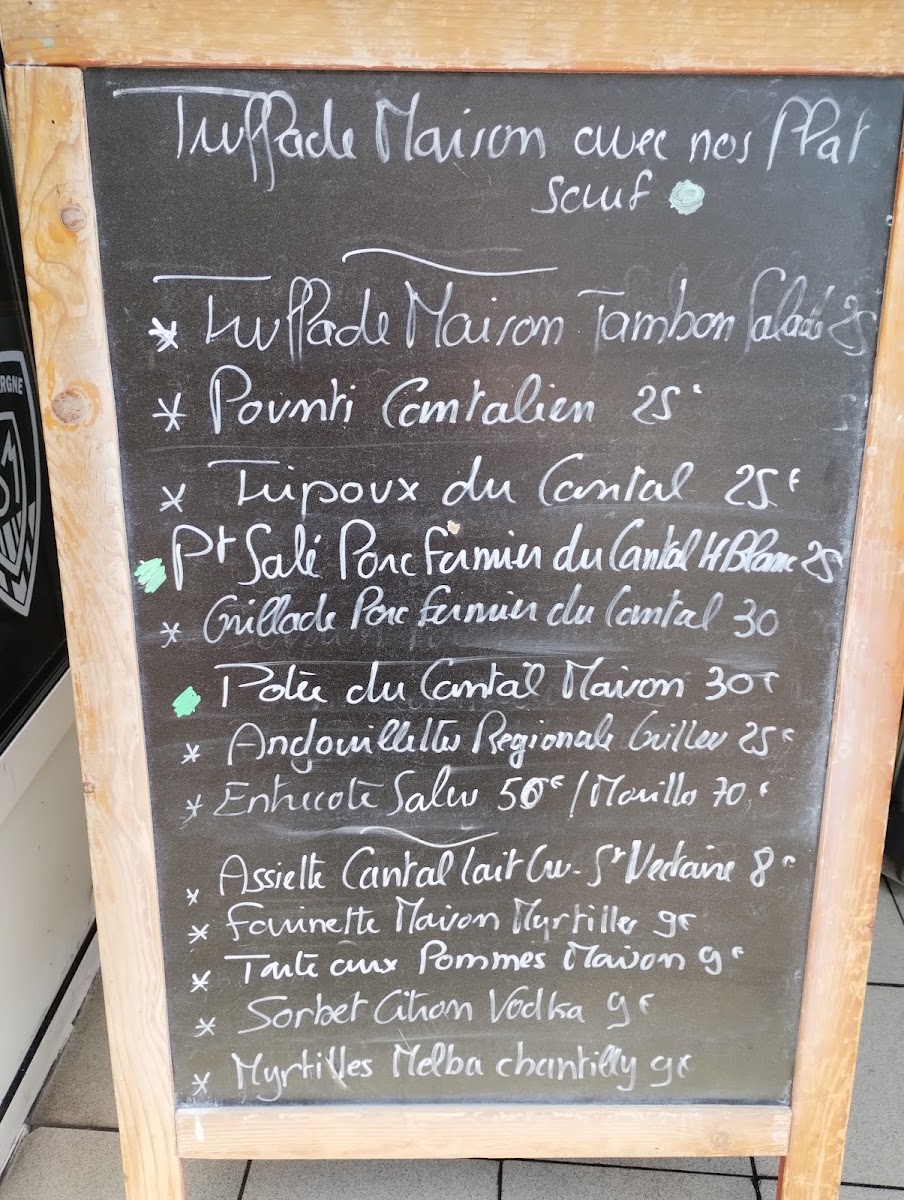 Truffade Maison avec nos Plat
sauf
* Truffade Maison Jambon Salade 25
* Pounti Cantalien 25€
* Tripoux du Cantal 25€
Pt Salé Porc Fermier du Cantal H Blanc 25
* Grillade Porc Fermier du Cantal 30
Potée du Cantal Maison 30€
* Andouillettes Regionale Griller 25€
* Entrecote Salers 50€ / Morilles 70€
* Assiette Cantal lait Cru - St Nectaire 8€
* Farinette Maison Myrtilles 9€
* Tarte aux Pommes Maison 9€
* Sorbet Citron Vodka 9€
* Myrtilles Melba chantilly 9€
ERGNE